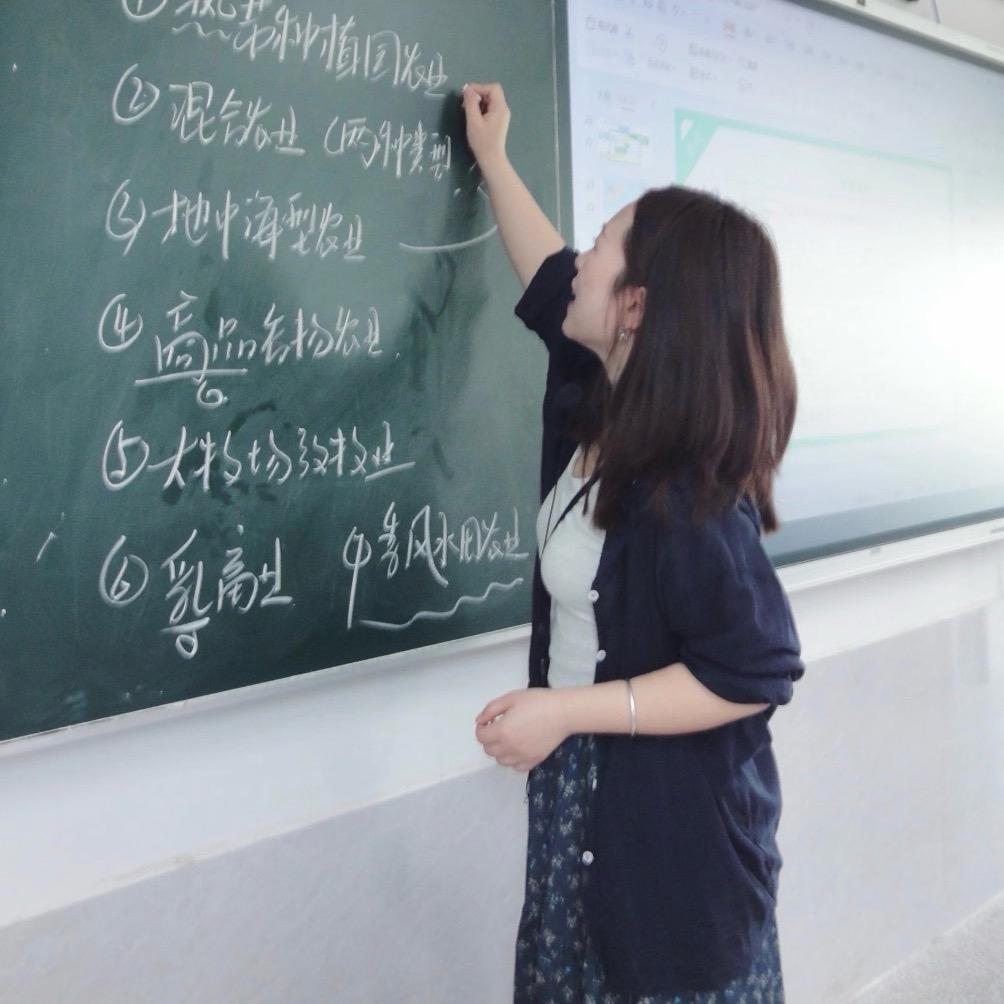 ① 热带种植园农业
② 混合农业 (两种类型
③ 地中海型农业
④ 商品谷物农业.
⑤ 大牧场放牧业
⑥ 乳畜业 季风水田农业